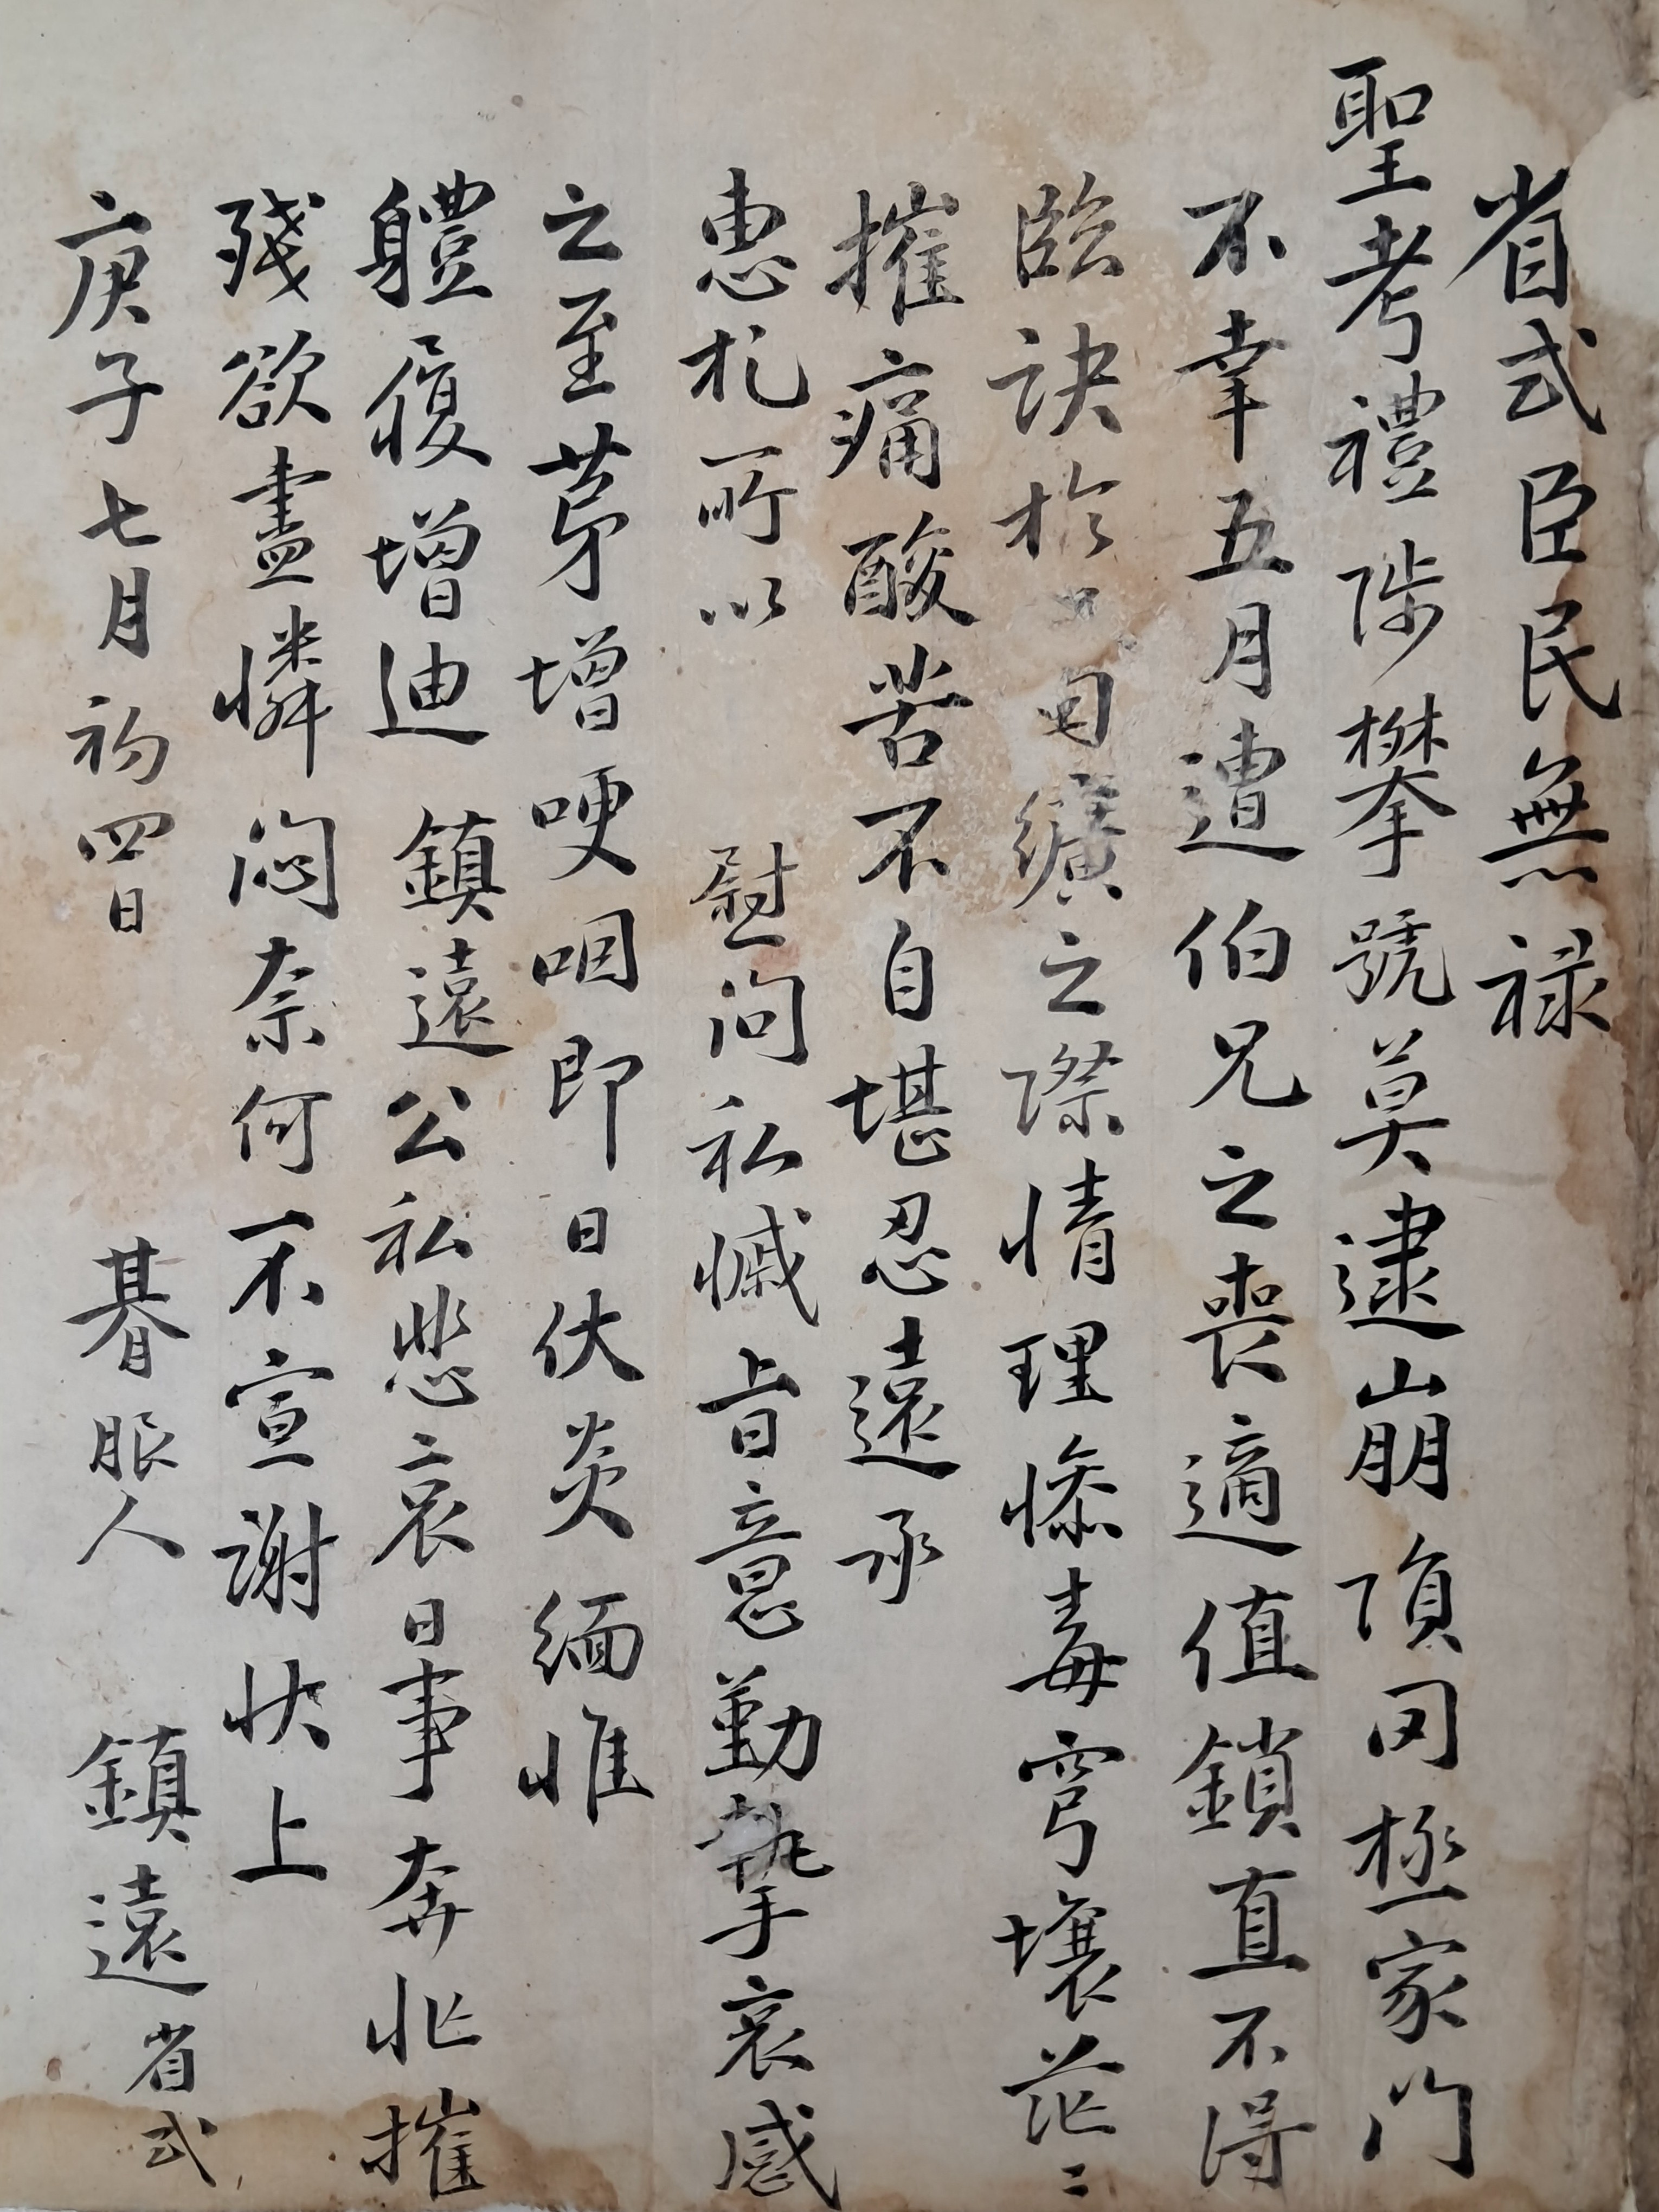 省式臣民無祿
聖考禮陟攀號莫逮崩隕罔極家門
不幸五月遭伯兄之喪適値鎖直不得
臨訣於纊之際情理慘毒穹壤茫〻
摧痛酸苦不自堪忍遠承
惠札所以 慰問私慽旨意勤摯哀感
之至茅增哽咽即日伏炎緬惟
軆履增迪 鎮遠公私悲哀日事奔忙摧
殘欲盡憐悶奈何不宣謝狀上
庚子七月初四日 朞服人 鎮遠省式